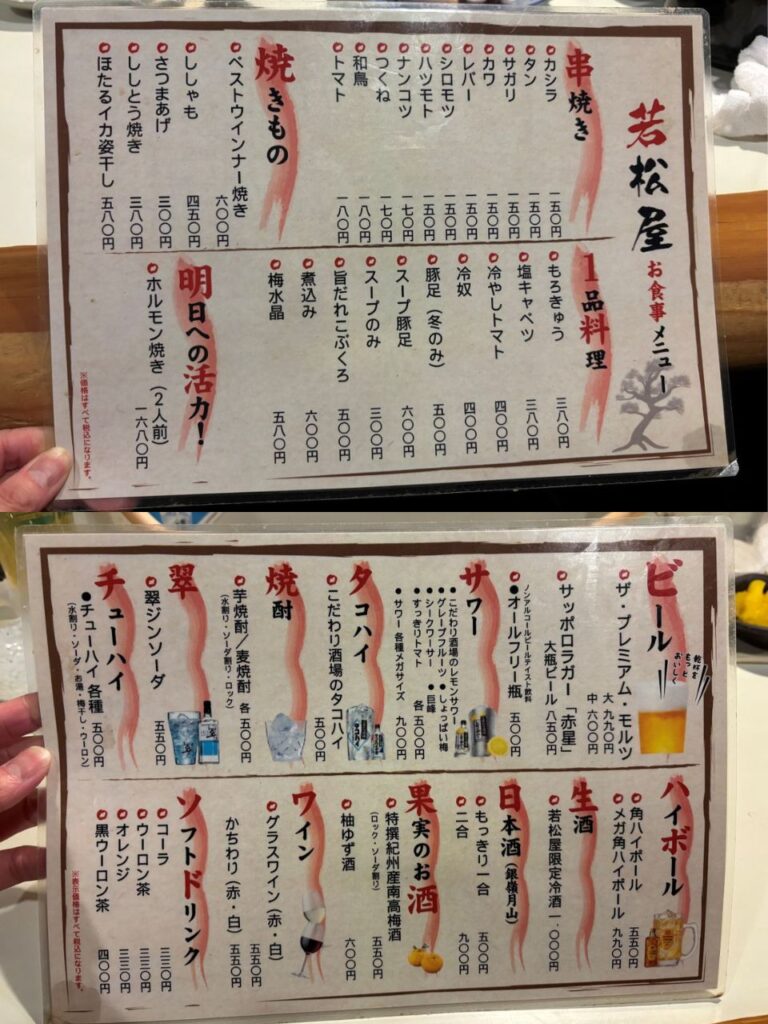 若松屋 お食事メニュー
串焼き
カシラ 一五〇円
タン 一五〇円
サガリ 一五〇円
カワ 一五〇円
レバー 一五〇円
シロモツ 一五〇円
ハツモト 一五〇円
ナンコツ 一七〇円
つくね 一七〇円
和鳥 一八〇円
トマト 一八〇円
焼きもの
ベストウインナー焼き 六〇〇円
ししゃも 四五〇円
さつまあげ 三〇〇円
ししとう焼き 三八〇円
ほたるイカ姿干し 五八〇円
1品料理
もろきゅう 三八〇円
塩キャベツ 三八〇円
冷やしトマト 四〇〇円
冷奴 四〇〇円
豚足(冬のみ) 五〇〇円
スープ豚足 六〇〇円
スープのみ 三〇〇円
旨だれこぶくろ 五〇〇円
煮込み 六〇〇円
梅水晶 五八〇円
明日への活力!
ホルモン焼き(2人前) 一六八〇円
※価格はすべて税込になります。
ビール
乾杯をもっとおいしく
ザ・プレミアム・モルツ
大 九九〇円
中 六〇〇円
サッポロラガー「赤星」
大瓶ビール 八五〇円
ノンアルコールビールテイスト飲料
●オールフリー瓶 五〇〇円
サワー
●こだわり酒場のレモンサワー
●グレープフルーツ ●しょっぱい梅
●シークワーサー ●巨峰
●すっきりトマト 各 五〇〇円
●サワー 各種メガサイズ 九〇〇円
タコハイ
こだわり酒場のタコハイ 五〇〇円
焼酎
芋焼酎/麦焼酎 各 五〇〇円
(水割り・ソーダ割り・ロック)
翠
翠ジンソーダ 五五〇円
チューハイ
●チューハイ 各種 五〇〇円
(水割り・ソーダ・お湯・梅干し・ウーロン)
ハイボール
角ハイボール 五五〇円
メガ角ハイボール 九九〇円
生酒
若松屋限定冷酒 一、〇〇〇円
日本酒(銀嶺月山)
もっきり一合 五〇〇円
二合 九〇〇円
果実のお酒
特撰紀州産南高梅酒 五五〇円
(ロック・ソーダ割り)
柚ゆず酒 六〇〇円
ワイン
グラスワイン(赤・白) 五五〇円
かちわり(赤・白) 五五〇円
ソフトドリンク
コーラ 三三〇円
ウーロン茶 三三〇円
オレンジ 三三〇円
黒ウーロン茶 四〇〇円
※表示価格はすべて税込になります。